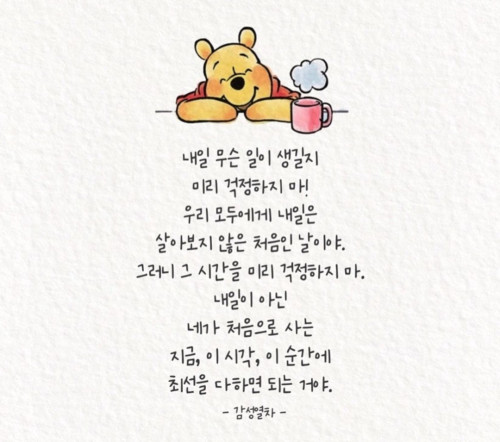 내일 무슨 일이 생길지
미리 걱정하지 마!
우리 모두에게 내일은
살아보지 않은 처음인 날이야.
그러니 그 시간을 미리 걱정하지 마.
내일이 아닌
네가 처음으로 사는
지금, 이 시각, 이 순간에
최선을 다하면 되는 거야.
- 감성열차 -